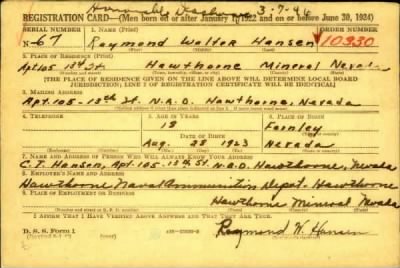 Honorably Discharged 3-7-46
REGISTRATION CARD—(Men born on or after January 1, 1922 and on or before June 30, 1924)
SERIAL NUMBER 1. NAME (Print) ORDER NUMBER
N-67 Raymond Walter Hansen 10330
(First) (Middle) (Last)
2. PLACE OF RESIDENCE (Print)
Apt. 105 13th St. Hawthorne Mineral Nevada
(Number and street) (Town, township, village, or city) (County) (State)
[THE PLACE OF RESIDENCE GIVEN ON THE LINE ABOVE WILL DETERMINE LOCAL BOARD
JURISDICTION; LINE 2 OF REGISTRATION CERTIFICATE WILL BE IDENTICAL]
3. MAILING ADDRESS
Apt. 105-13th St. N.A.D. Hawthorne, Nevada
4. TELEPHONE 5. AGE IN YEARS 6. PLACE OF BIRTH
18 Fernley
DATE OF BIRTH
Aug. 28 1923 Nevada
7. NAME AND ADDRESS OF PERSON WHO WILL ALWAYS KNOW YOUR ADDRESS
Hansen, Apt. 105-13th St. N.A.D. Hawthorne, Nevada
8. EMPLOYER'S NAME AND ADDRESS
Hawthorne Naval Ammunition Depot. Hawthorne
9. PLACE OF EMPLOYMENT OR BUSINESS
Hawthorne Mineral Nevada
(Number and street or R. F. D. number) (Town) (County) (State)
I AFFIRM THAT I HAVE VERIFIED ABOVE ANSWERS AND THAT THEY ARE TRUE.
D. S. S. Form 1
Raymond W. Hansen